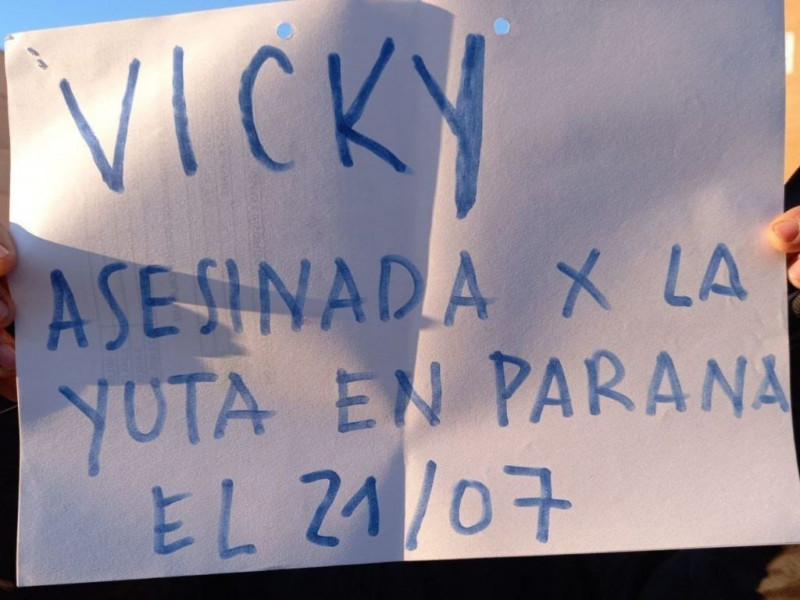 VICKY
ASESINADA X LA
YUTA EN PARANA
EL 21/07